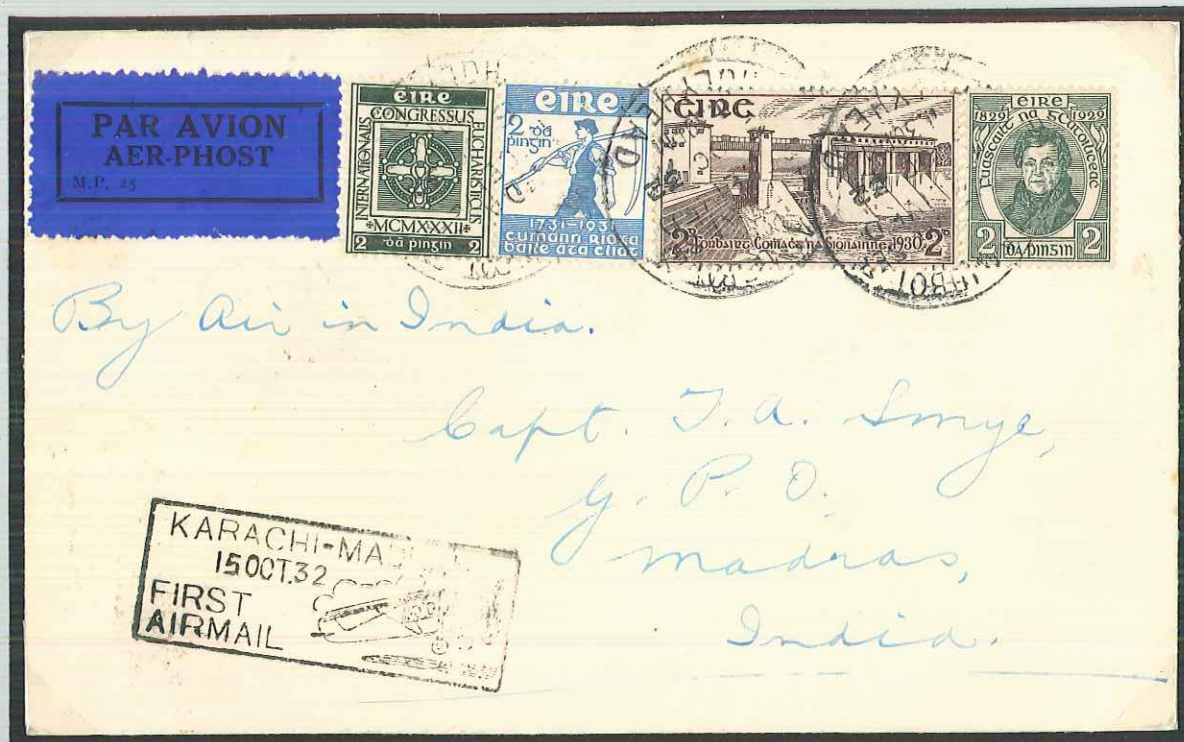 PAR AVION
AER-PHOST
M.P. 25
éire
CONGRESSUS
INTERNATIONALIS
EUCHARISTICUS
MCMXXXII
2 dá pinġin 2
éire
2 dá
pinġin
1731-1931
cumann ríoġa
baile áta cliaṫ
éire
2D Forbairt Comhacta na Sionainne 1930 2D
éire
1829 1929
Fuascailt na gCaitoliceac
2 dá pinsin 2
HOLYHEAD
By Air in India.
Capt. T. A. Smye,
G. P. O.
Madras,
India.
KARACHI-MA
15 OCT.32
FIRST
AIRMAIL